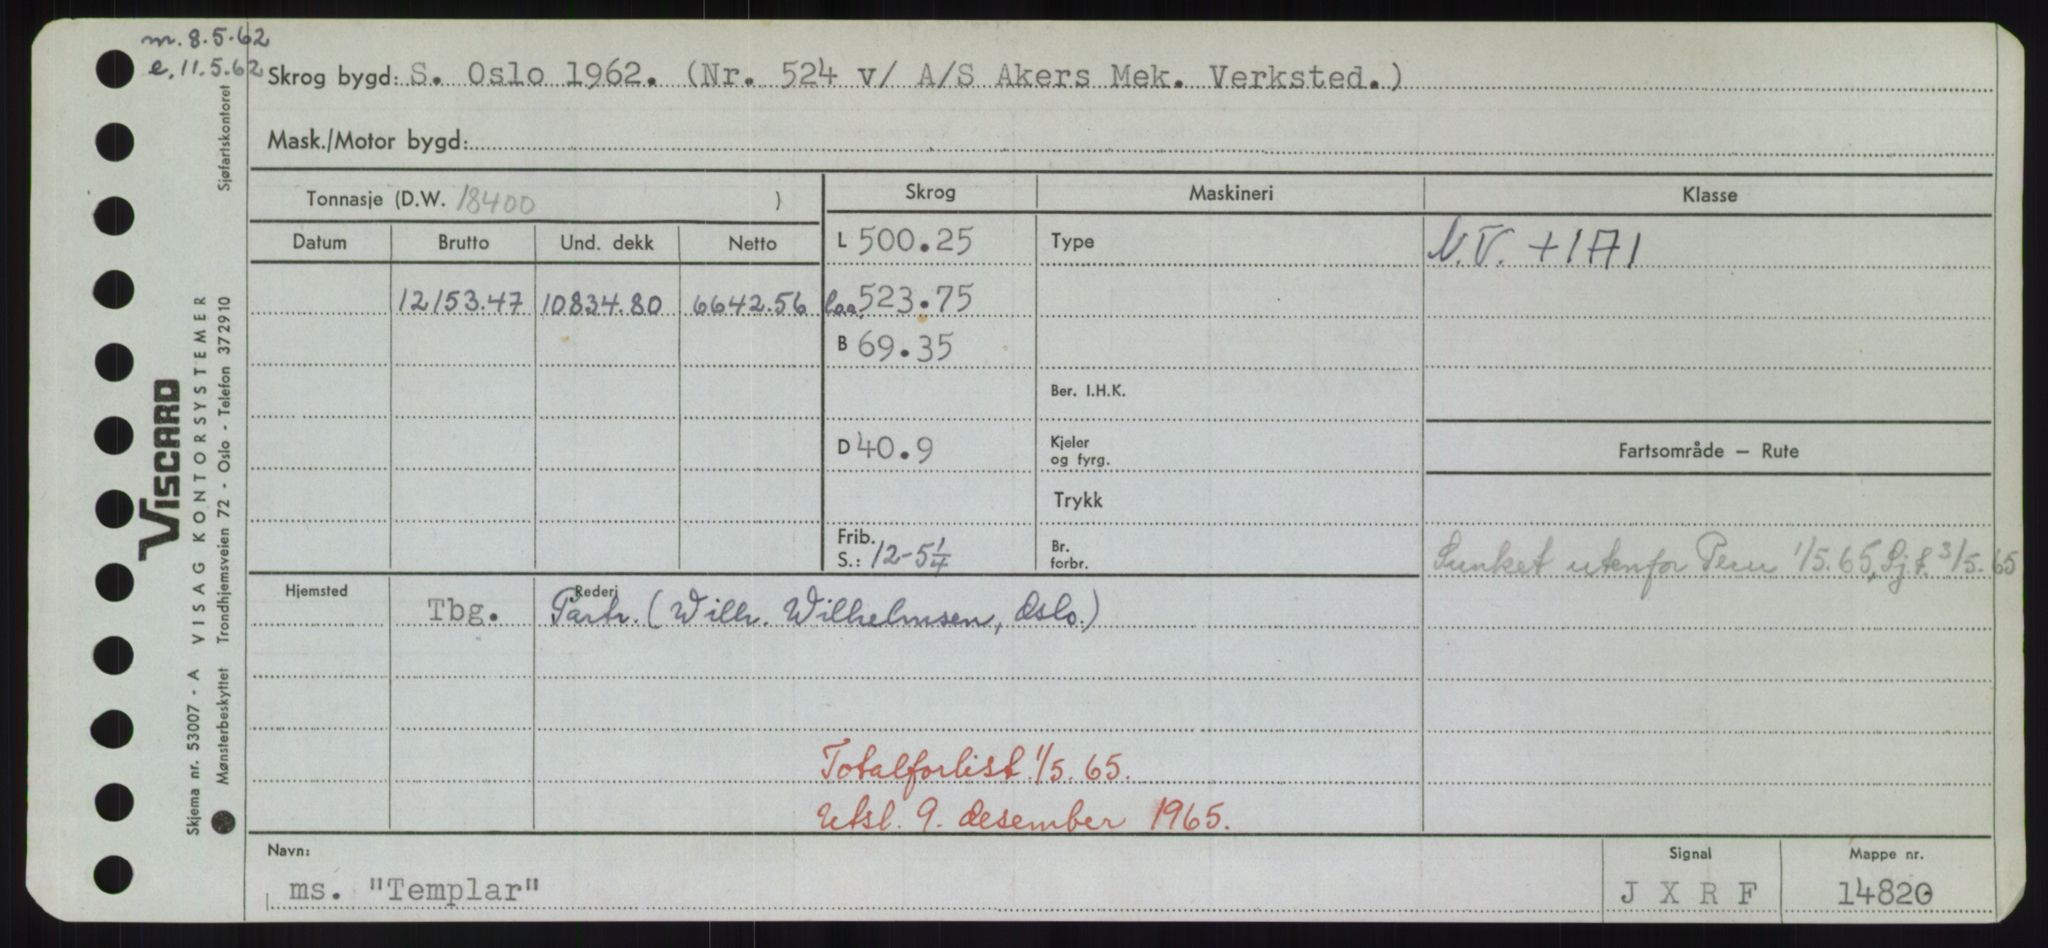 m. 8.5.62
e. 11.5.62
Skrog bygd: S. Oslo 1962. (Nr. 524 v/ A/S Akers Mek. Verksted.)
Mask./Motor bygd:
Tonnasje (D.W. 18400 )
Skrog
Maskineri
Klasse
Datum Brutto Und. dekk Netto
L 500.25
Type
N.V. +1A1
12153.47 10834.80 6642.56
loa. 523.75
B 69.35
Ber. I.H.K.
D 40.9
Kjeler
og fyrg.
Fartsområde – Rute
Trykk
Frib.
S.: 12-5 1/4
Br.
forbr.
Sunket utenfor Peru 1/5.65, Sj.f. 3/5.65
Hjemsted
Rederi
Tbg. Partr. (Wilh. Wilhelmsen, Oslo.)
Totalforlist 1/5. 65.
Utsl. 9. desember 1965.
Navn:
Signal
Mappe nr.
ms. "Templar"
J X R F
14820
VISCARD
Skjema nr. 53007 - A VISAG KONTORSYSTEMER
Mønsterbeskyttet Trondhjemsveien 72 - Oslo - Telefon 372910
Sjøfartskontoret